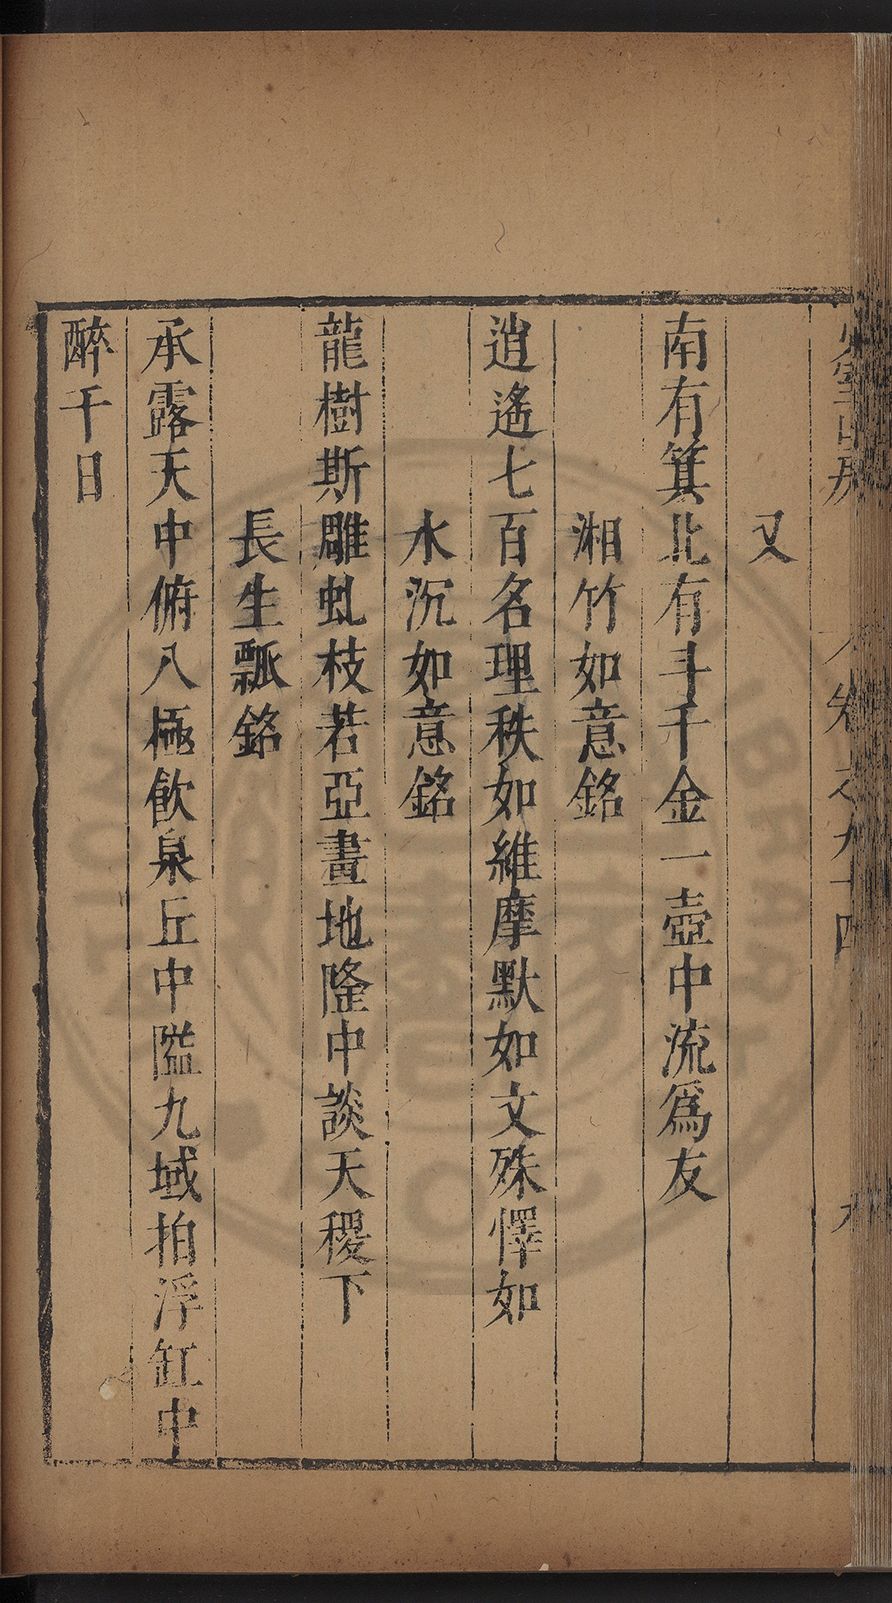 少室山房
卷之九十四
又
南有箕北有斗千金一壺中流爲友
湘竹如意銘
逍遙七百名理秩如維摩默如文殊懌如
水沉如意銘
龍樹斯雕虬枝若亞畫地隆中談天稷下
長生瓢銘
承露天中俯八極飲泉丘中隘九域拍浮缸中
醉千日